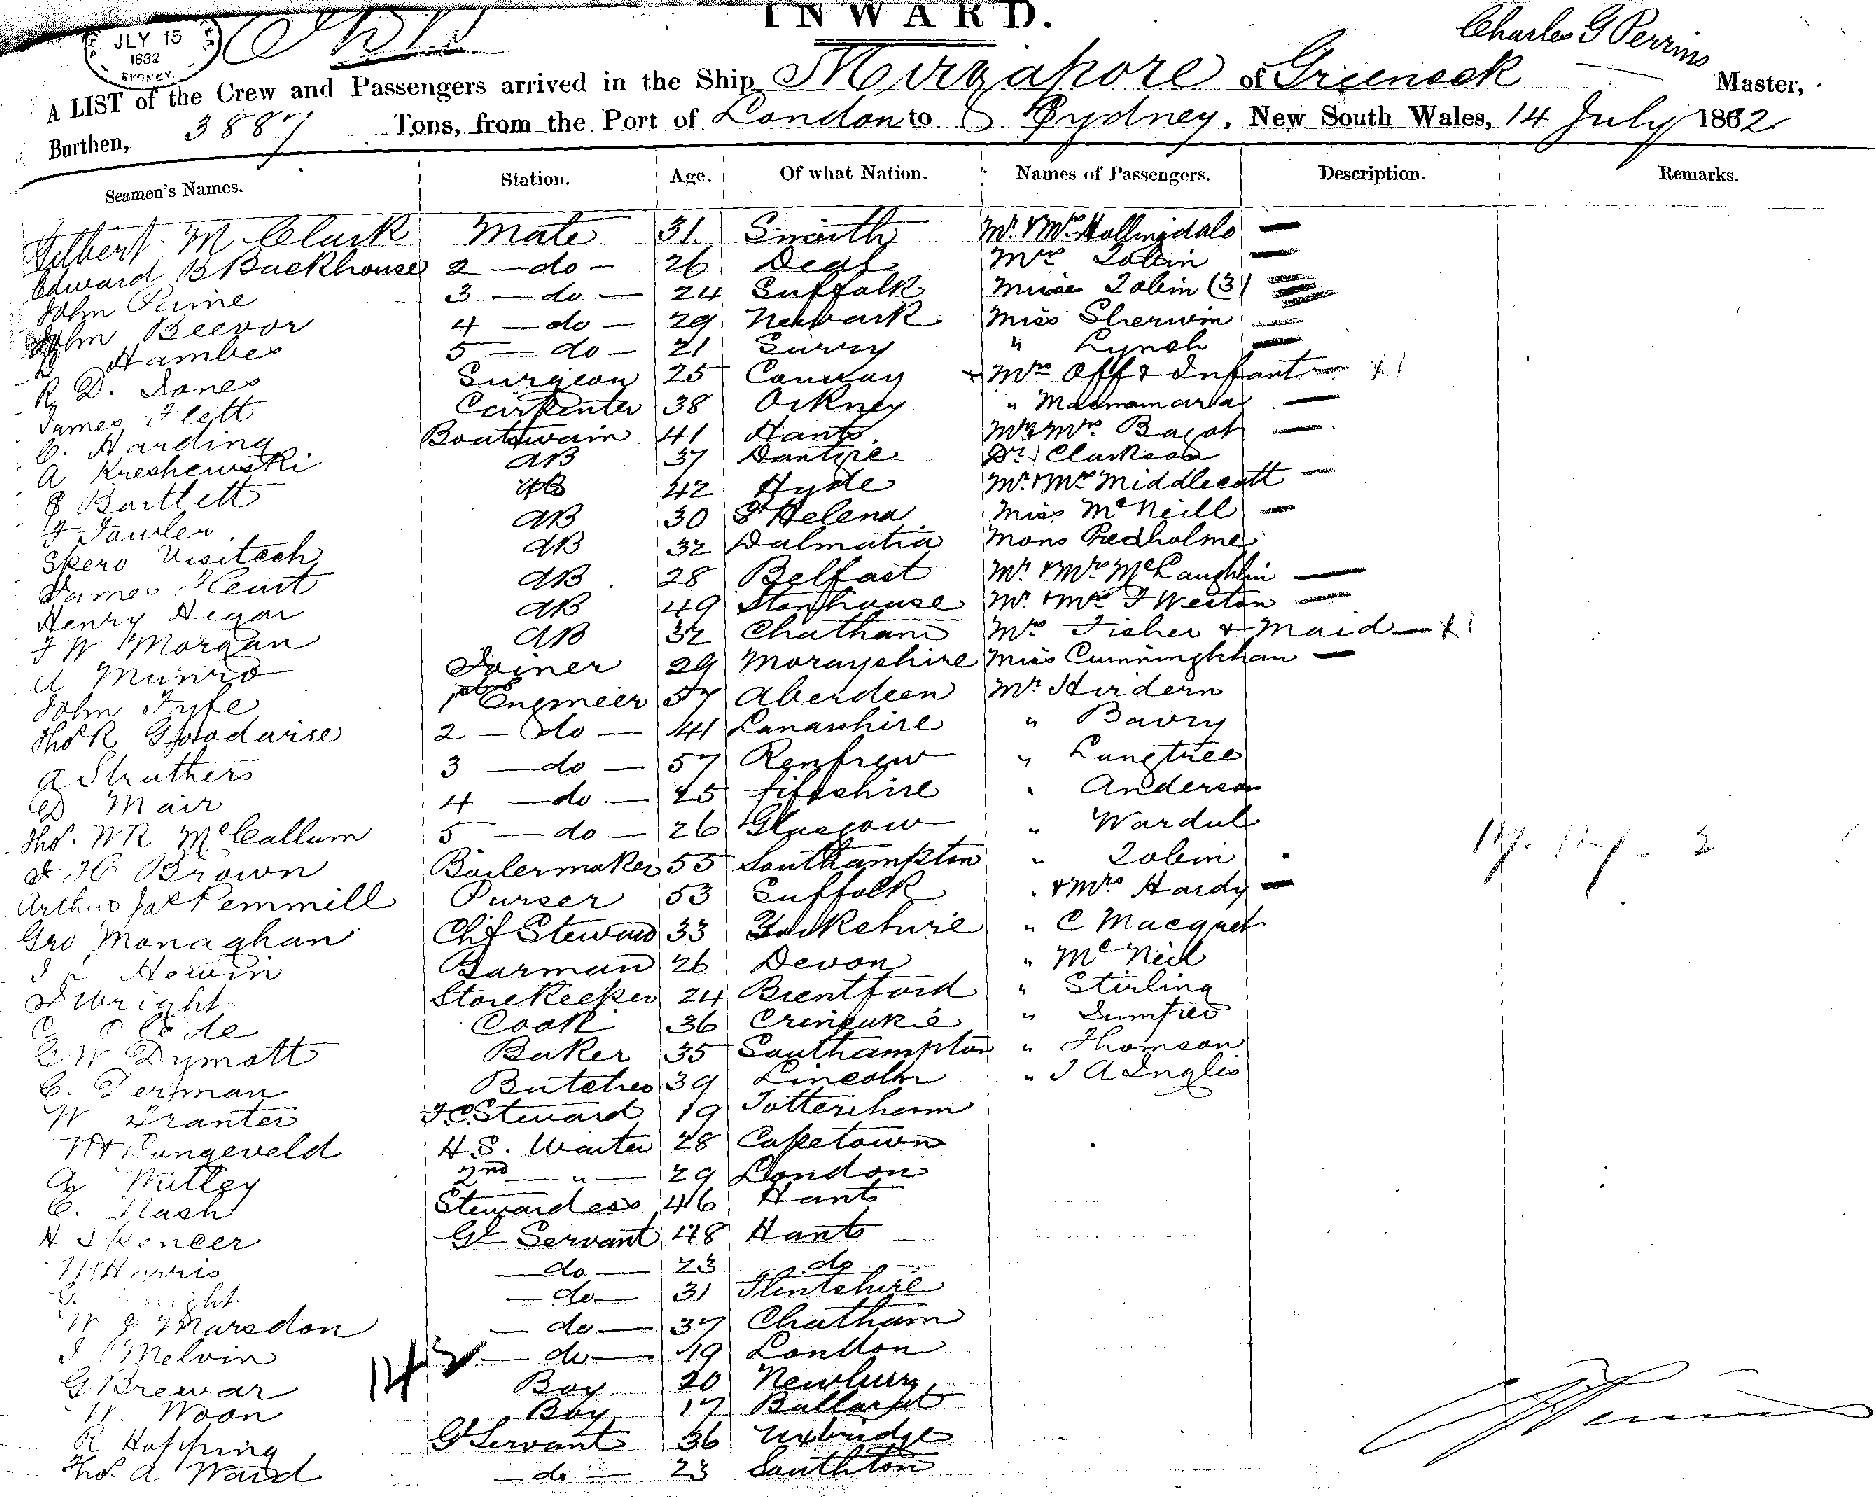 INWARD.
JLY 15
1882
SYDNEY
Charles G Perrins
A LIST of the Crew and Passengers arrived in the Ship Mirzapore of Greenock Master,
Burthen, 3887 Tons, from the Port of London to Sydney, New South Wales, 14 July 1882
Seamen's Names. Station. Age. Of what Nation. Names of Passengers. Description. Remarks.
Gilbert McClark Mate 31 Mr & Mrs Hollingdale
Edward B Backhouse 2 do 26 Deal Mrs Tobin
John Prime 3 do 24 Suffolk Miss Tobin (3)
John Beevor 4 do 29 Newark Miss Sherwin
Hambes 5 do 21 Surry " Lynch
R D. Jones Surgeon 25 Conway Mrs Off & Infant
James Flett Carpenter 38 Orkney "
C. Harding Boatswain 41 Hants Mr & Mrs Bagot
A Kreshewski AB 37 Dr Clarkson
J Bartlett AB 42 Hyde Mr & Mrs Middlecott
J Fawler AB 30 St Helena Miss McNeill
Spero Visitech AB 32 Dalmatia Mons Redholme
James Heart AB 28 Belfast Mr & Mrs McLaughlin
Henry Hegar AB 49 Stonhouse Mr & Mrs J Weston
J W Morgan AB 32 Chatham Mrs Fisher & Maid
A Munro Joiner 29 Morayshire Miss Cunninghham
John Fyfe 1st Engineer 57 Aberdeen Mr Hirdern
Thos R Goodarise 2 do 41 Lanarkhire " Bavry
A Struthers 3 do 57 Renfrew " Langtree
D Mair 4 do 25 Fifeshire " Anderson
Thos. WR McCallum 5 do 26 Glasgow " Wardul
J H Brown Boilermaker 55 Southampton " Tobin
Arthur Jas Pemmill Purser 53 Suffolk " & Mrs Hardy
Geo Monaghan Chf Steward 33 Yorkshire " C Macquet
Howin Barman 26 Devon " McNeil
J Wright Storekeeper 24 Brentford " Stirling
Cook 36 " Dumfies
C W Dymott Baker 35 Southampton " Thomson
C. German Butcher 39 Lincoln " J A Inglis
W Tranter Steward 19 Tottersham
W Rungeveld H S. Waiter 28 Capetown
A Willey 2nd " 29 London
C. Nash Stewardess 46 Hants
H Spencer Gl Servant 48 Hants
W Harris do 23 do
G. do 31 Flintshire
W J Marsdon do 37 Chatham
J Melvin do 19 London
G Brewar Boy 20 Newbury
W. Woon Boy 17 Ballarat
R Hopping Gl Servant 36 Uxbridge
Thos. A Ward do 23 Southton